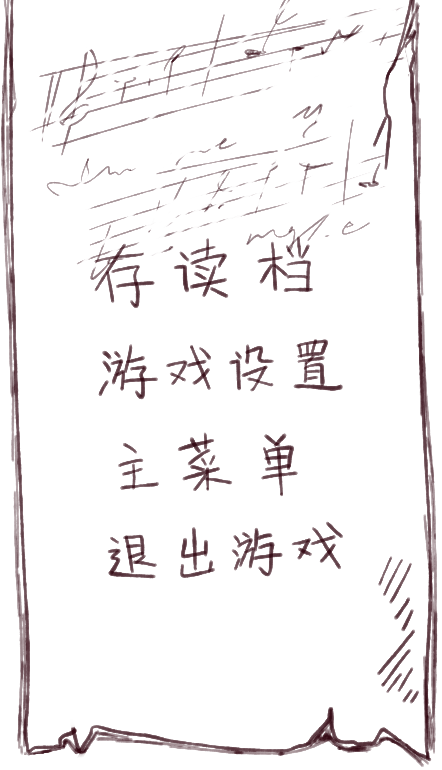 存读档
游戏设置
主菜单
退出游戏